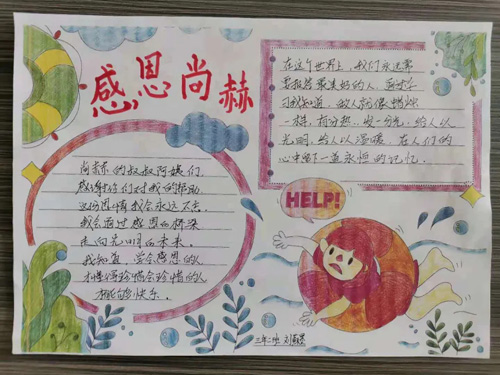 感恩尚赫
在这个世界上，我们永远需
要报答最美好的人
我知道，做人就像蜡烛
一样，有分热，发一分光，给人以
光明，给人以温暖，在人们的
心中留下一道永恒的记忆．
尚赫的叔叔阿姨们．
感谢你们对我的帮助．
这份恩情我会永远不忘．
我会通过感恩的桥梁
走向光明的未来．
我知道，学会感恩的人
才懂得珍惜会珍惜的人
才能够快乐．
HELP!
三年二班 刘